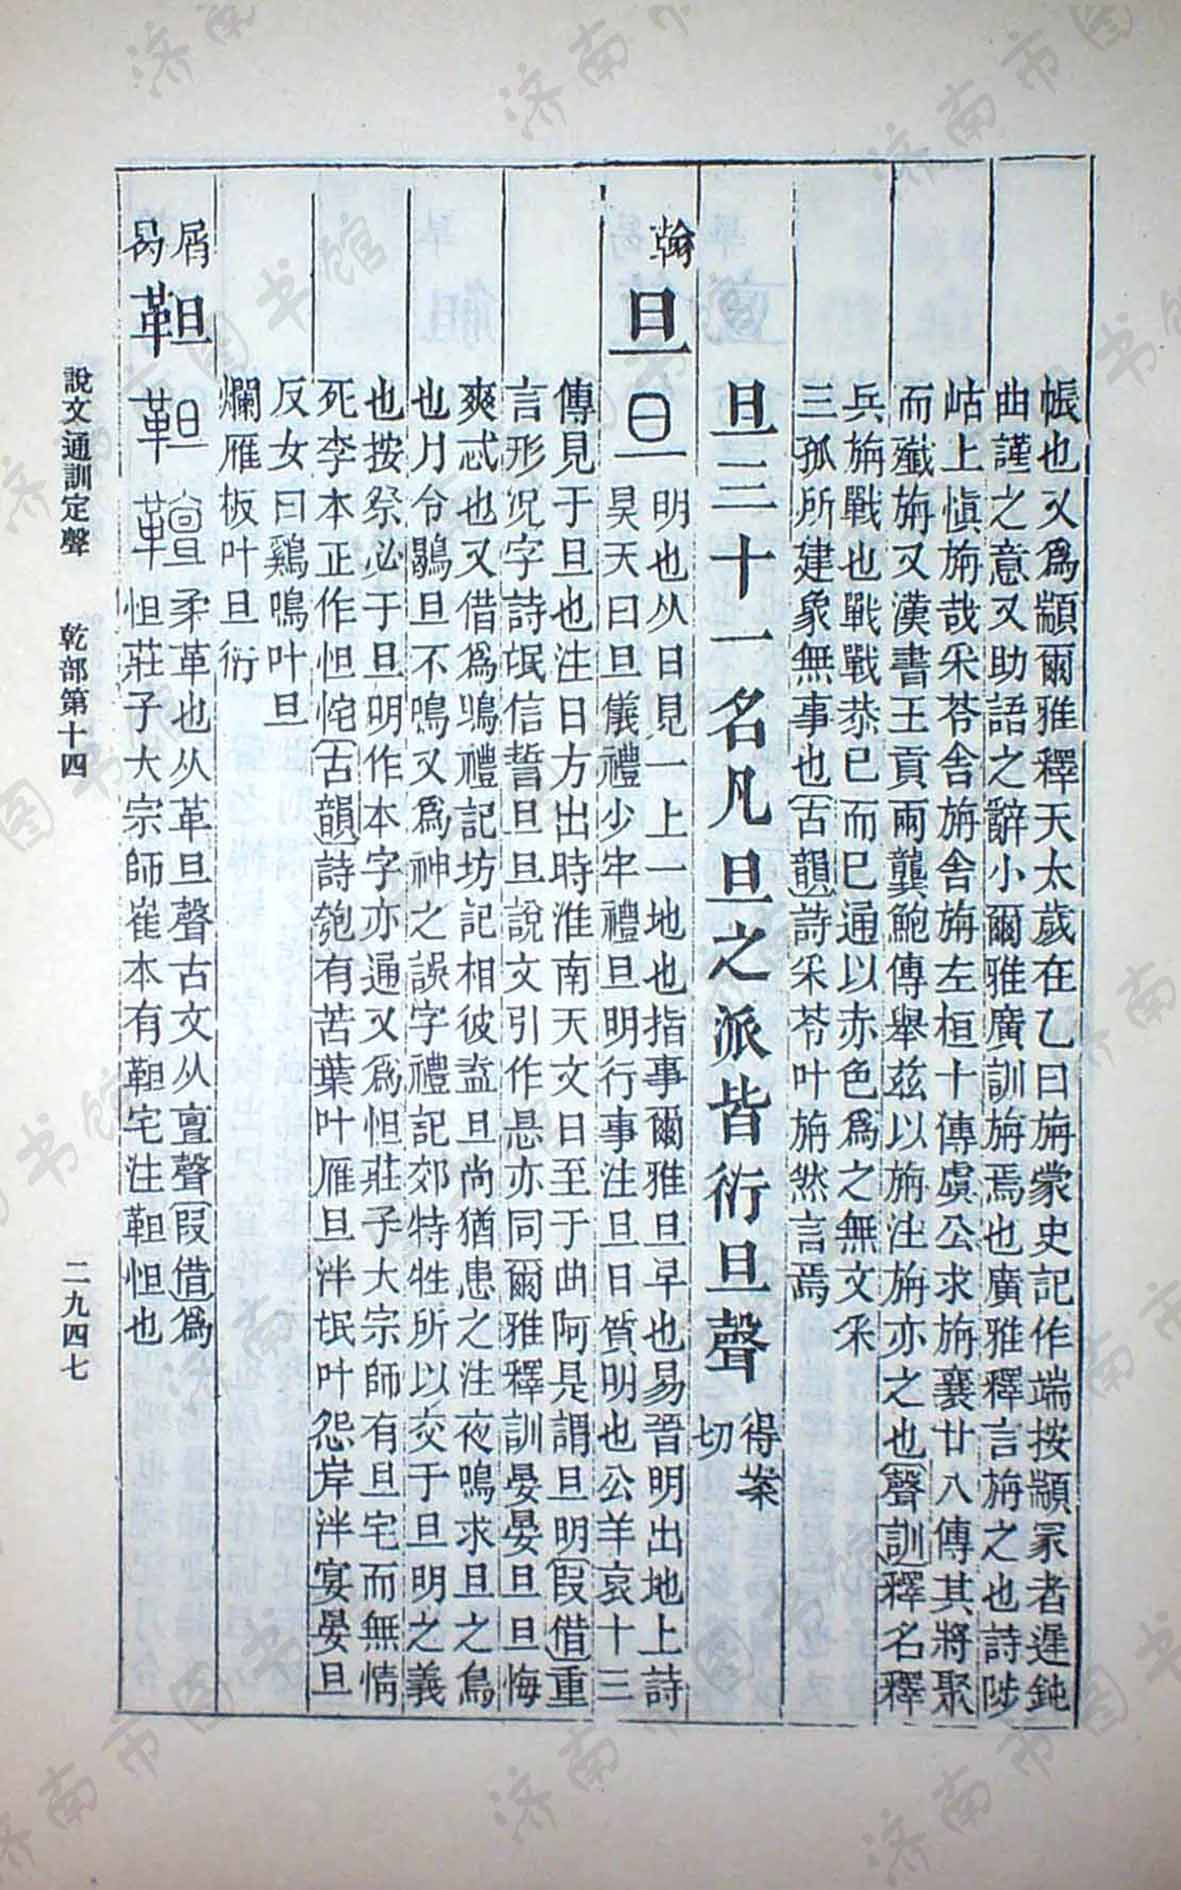 帳也又爲顓爾雅釋天太歲在乙曰旃蒙史記作端按顓冡者遲鈍
曲謹之意又助語之辭小爾雅廣訓旃焉也廣雅釋言旃之也詩陟
岵上愼旃哉采苓舍旃舍旃左桓十傳虞公求旃襄廿八傳其將聚
而殲旃又漢書王貢兩龔鮑傳舉茲以旃注旃亦之也聲訓釋名釋
兵旃戰也戰戰恭已而已通以赤色爲之無文采
三孤所建象無事也古韻詩采苓叶旃然言焉
旦三十一名凡旦之派皆衍旦聲 得案
切
翰
旦 明也从日見一上一地也指事爾雅旦早也易晉明出地上詩
昊天曰旦儀禮少牢禮旦明行事注旦日質明也公羊哀十三
傳見于旦也注日方出時淮南天文日至于曲阿是謂旦明叚借重
言形況字詩氓信誓旦旦說文引作悬亦同爾雅釋訓晏晏旦旦悔
爽忒也又借爲鴠禮記坊記相彼盍旦尚猶患之注夜鳴求旦之鳥
也月令鶡旦不鳴又爲神之誤字禮記郊特牲所以交于旦明之義
也按祭必于旦明作本字亦通又爲怛莊子大宗師有旦宅而無情
死李本正作怛侘古韻詩匏有苦葉叶雁旦泮氓叶怨岸泮宴晏旦
反女曰鷄鳴叶旦
爛雁板叶旦衍
屑
曷
靼 柔革也从革旦聲古文从亶聲叚借爲
怛莊子大宗師崔本有靼宅注靼怛也
說文通訓定聲 乾部第十四 二九四七
济南市图书馆